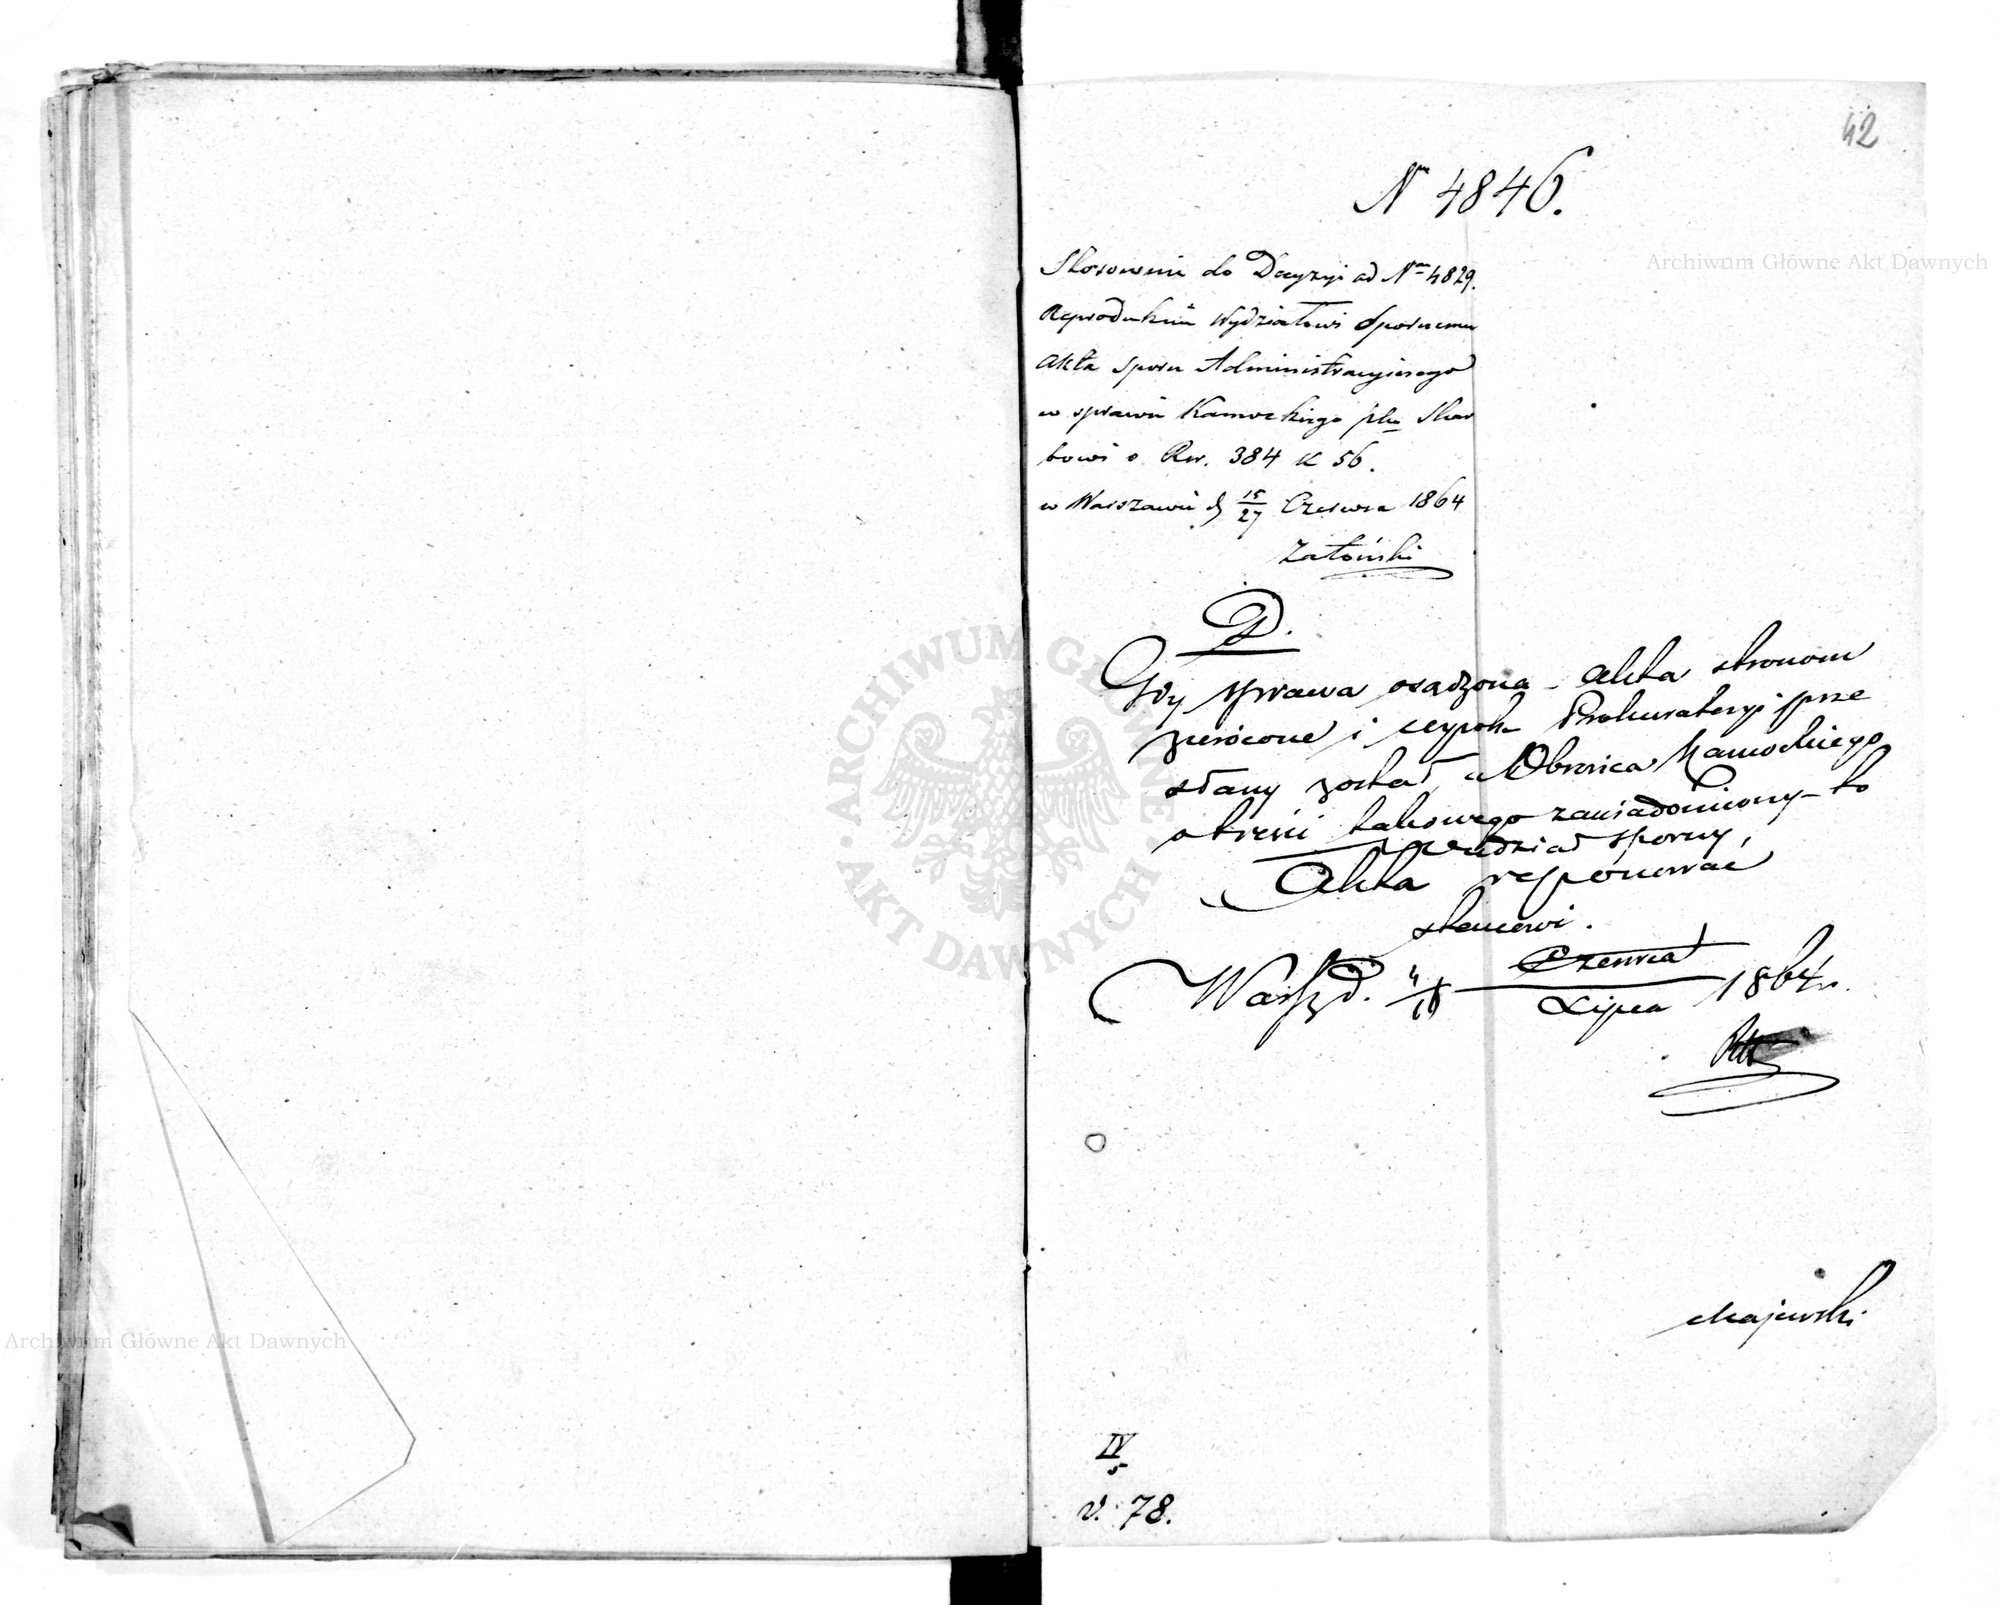 42
Nr 4846.
Stosownie do Decyzyi ad Nr 4829.
Reprodukuie Wydziałowi Spornemu
Akta sporu Administracyjnego
w sprawie Kamockiego p/ko Skar
bowi o Rsr. 384 k 56.
w Warszawie d. 15/27 Czerwca 1864
Załoński
D.
Gdy sprawa osądzona – Akta stronom
zwrócone i wypis Prokuratoryi prze
słany został, a Obrońca Kamockiego
o treści takowego zawiadomiony – to
Wydział sporny,
Akta reponować
stanowi.
Warsz. d. 4/16 Czerwca Lipca 1864 r.
Majewski
IV
5
v. 78.
Archiwum Główne Akt Dawnych
Archiwum Główne Akt Dawnych
ARCHIWUM GŁÓWNE · AKT DAWNYCH ·